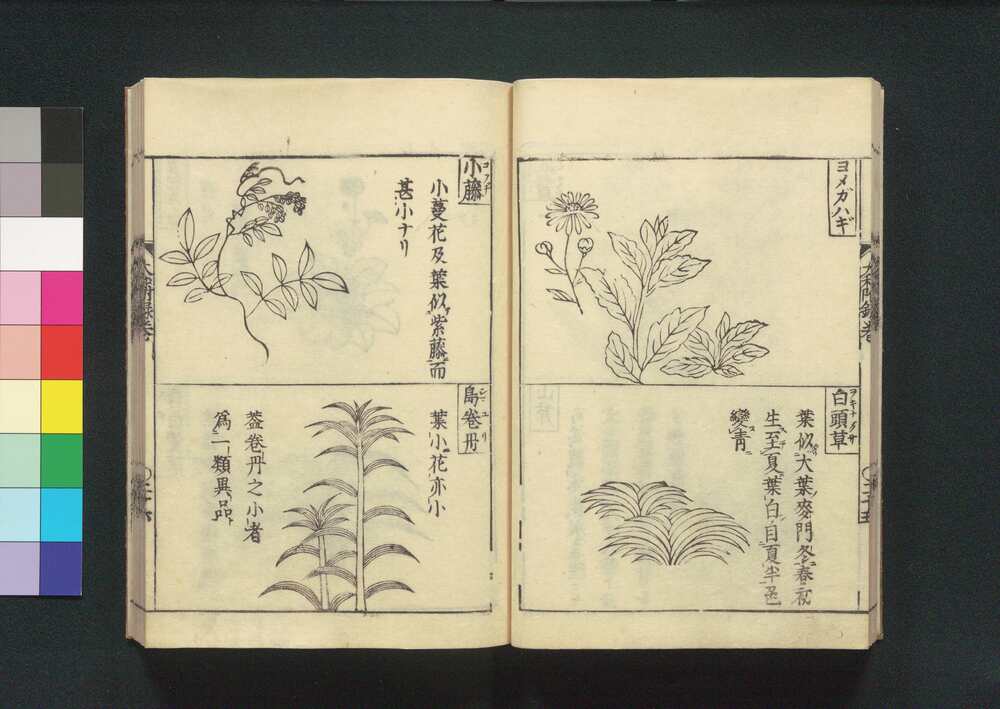 ヨメガハギ
白頭草
ヲキナグサ
葉似大葉麥門冬春初
生至夏葉白自夏半已
變青
小藤
コフヂ
小蔓花及葉似紫藤而
甚小ナリ
島卷丹
葉小花亦小
葢卷丹之小者
爲一類異品